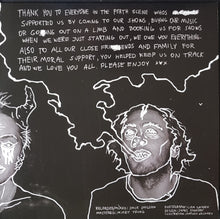 THANK YOU TO EVERYONE IN THE PERTH SCENE WHOS
SUPPORTED US BY COMING TO OUR SHOWS, BUYING OUR MUSIC
OR GOING OUT ON A LIMB AND BOOKING US FOR SHOWS
WHEN WE WERE JUST STARTING OUT, WE OWE YOU EVERYTHING.
ALSO TO ALL OUR CLOSE FRIENDS AND FAMILY FOR
THEIR MORAL SUPPORT, YOU HELPED KEEP US ON TRACK
AND WE LOVE YOU ALL. PLEASE ENJOY XXX